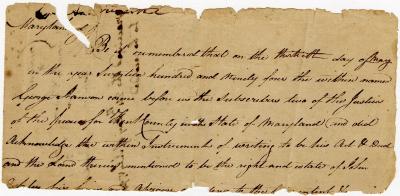 Maryland
Be it remembered that on the thirtieth day of May
in the year Seventeen hundred and Ninety four the within named
George Hanson came before us the Subscribers two of the Justices
of the peace for Kent County in the State of Maryland and did
Acknowledge the within Instrument of writing to be his Act & Deed
and the Land therein mentioned to be the right and estate of John
his heirs and Assigns